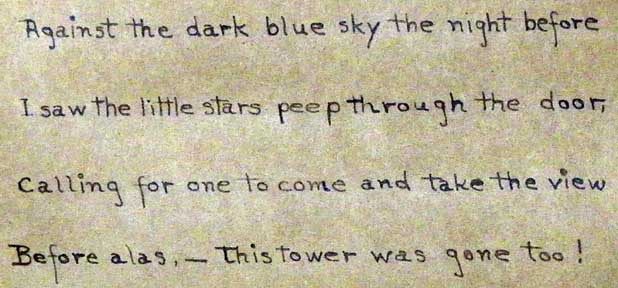 Against the dark blue sky the night before
I saw the little stars peep through the door,
Calling for one to come and take the view
Before alas, — This tower was gone too!